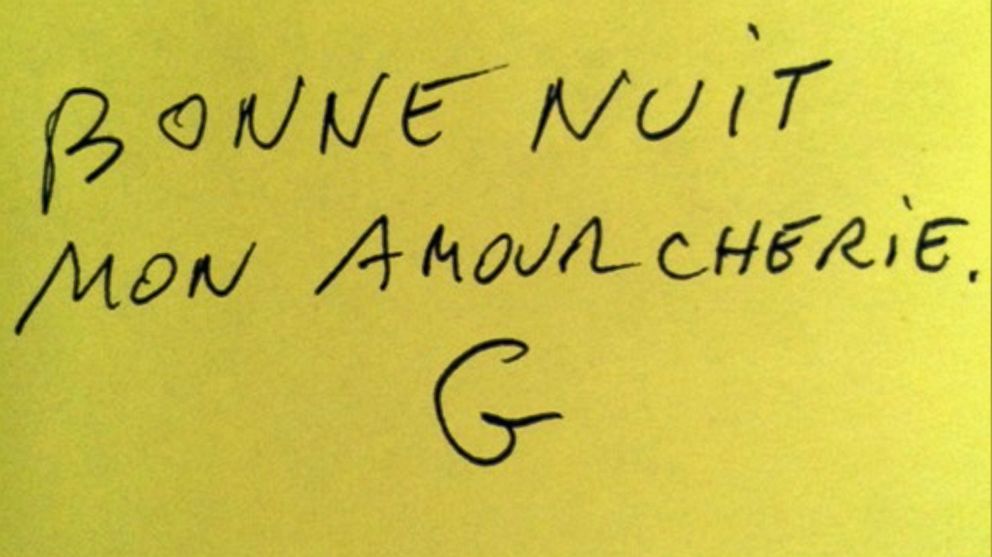 BONNE NUiT
MON AMOUR CHERiE.
G